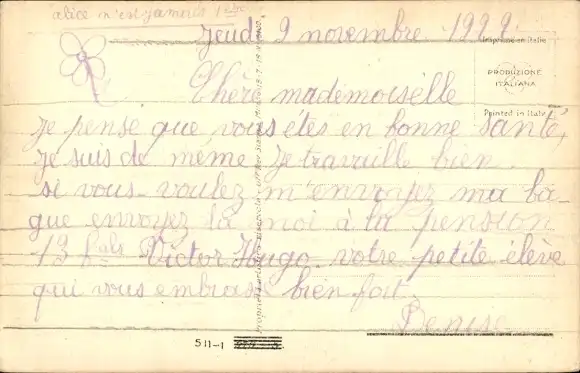 alice n'est jamais
Jeudi 9 novembre 1999
Imprimé en Italie
Chère mademoiselle
PRODUZIONE
ITALIANA
Printed in Italy
je pense que vous étes en bonne santé,
je suis de même je travaille bien
si vous voulez m'envoyez ma ba-
gue envoyez la moi à la pension
13 Victor Hugo votre petite élève
qui vous embrasse bien fort
Denise
511-1